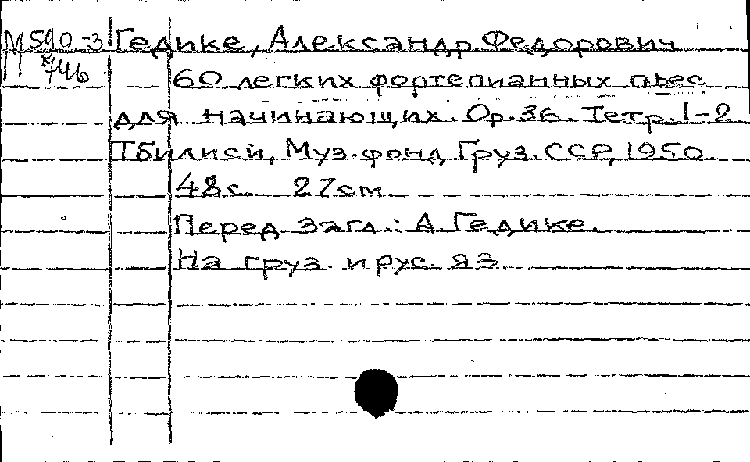 М590-3 Гедике, Александр Федорович
746 60 легких фортепианных пьес
для начинающих. Ор. 36. Тетр. 1-2
Тбилиси, Муз. фонд Груз. ССР, 1950
48с. 27см
Перед загл.: А. Гедике.
На груз. и рус. яз.